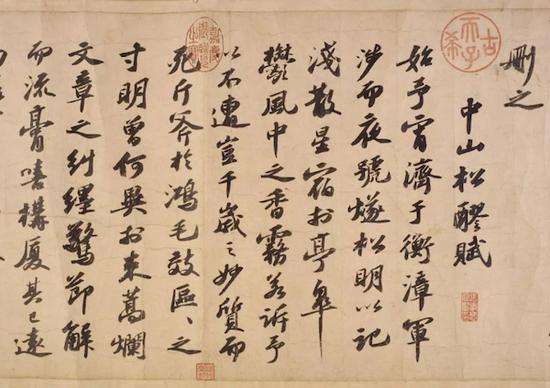 古希天子
嘉慶御覽之寶
刪之
中山松醪賦
始予宵濟于衡漳軍
涉而夜號燧松明以記
淺散星宿扵亭皋
鬱風中之香霧若訴予
以不遭豈千歲之妙質而
死斤斧扵鴻毛效區〻之
寸明曾何異扵束蒿爛
文章之糾纏驚節解
而流膏嘻構廈其已遠